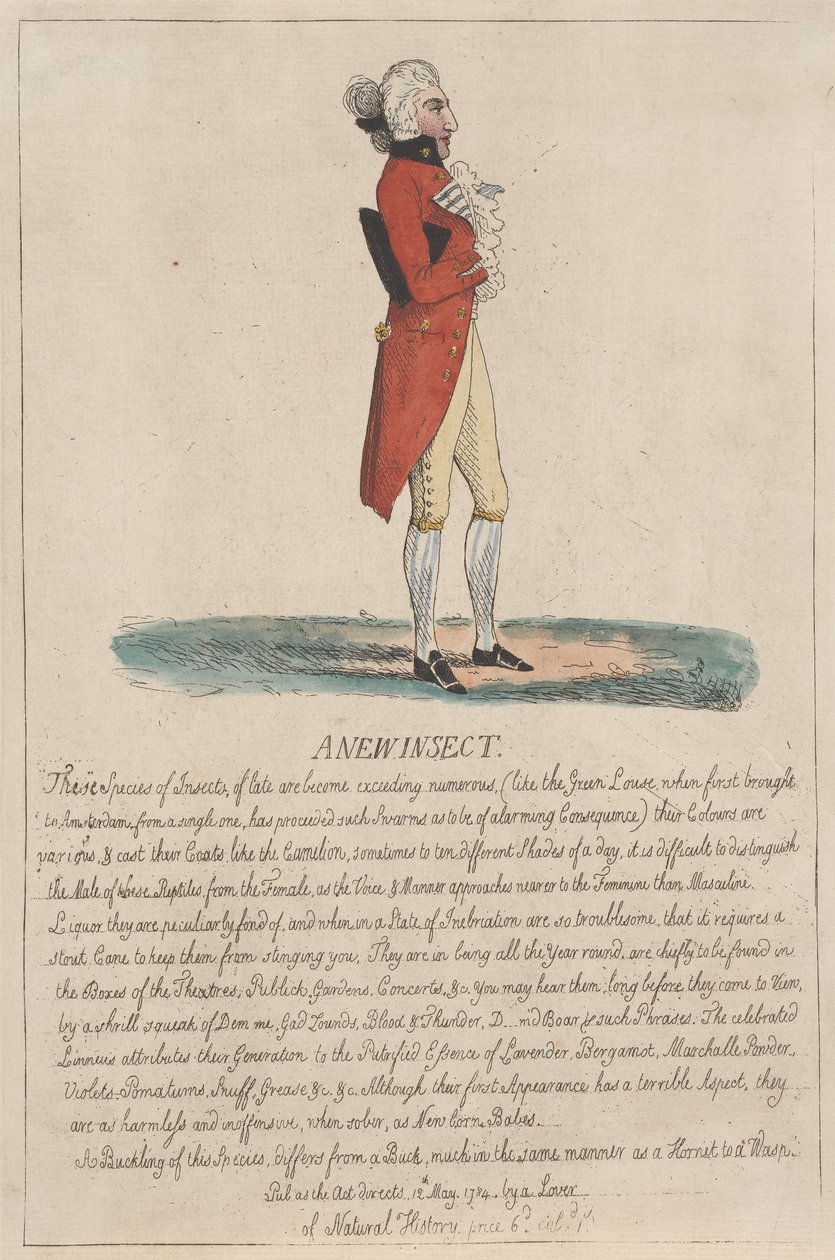 A NEW INSECT.
These Species of Insects, of late are become exceeding numerous, (like the Green Louse, when first brought
to Amsterdam, from a single one, has proceeded such Swarms as to be of alarming Consequence) their Colours are
various, & cast their Coats, like the Camelion, sometimes to ten different Shades of a day, it is difficult to distinguish
the Male of these Reptiles, from the Female, as the Voice & Manner approaches nearer to the Feminine than Masculine.
Liquor they are peculiarly fond of, and when in a State of Inebriation are so troublesome, that it requires a
stout Cane to keep them from stinging you, They are in being all the Year round, are chiefly to be found in
the Boxes of the Theatres, Publick Gardens, Concerts, &c. You may hear them, long before they come to View,
by a shrill squeak of Dem me, Gad Zounds, Blood & Thunder, D...m'd Boar & such Phrases. The celebrated
Linneus attributes their Generation to the Putrified Essence of Lavender, Bergamot, Marchalle Powder,
Violets-Pomatums, Snuff, Grease &c. &c. Although their first Appearance has a terrible Aspect, they
are as harmless and inoffensive, when sober, as New born Babes.
A Buckling of this Species, differs from a Buck, much in the same manner as a Hornet to a Wasp.
Pub as the Act directs 12th May. 1784. by a Lover
of Natural History. price 6d. cul.d 1s